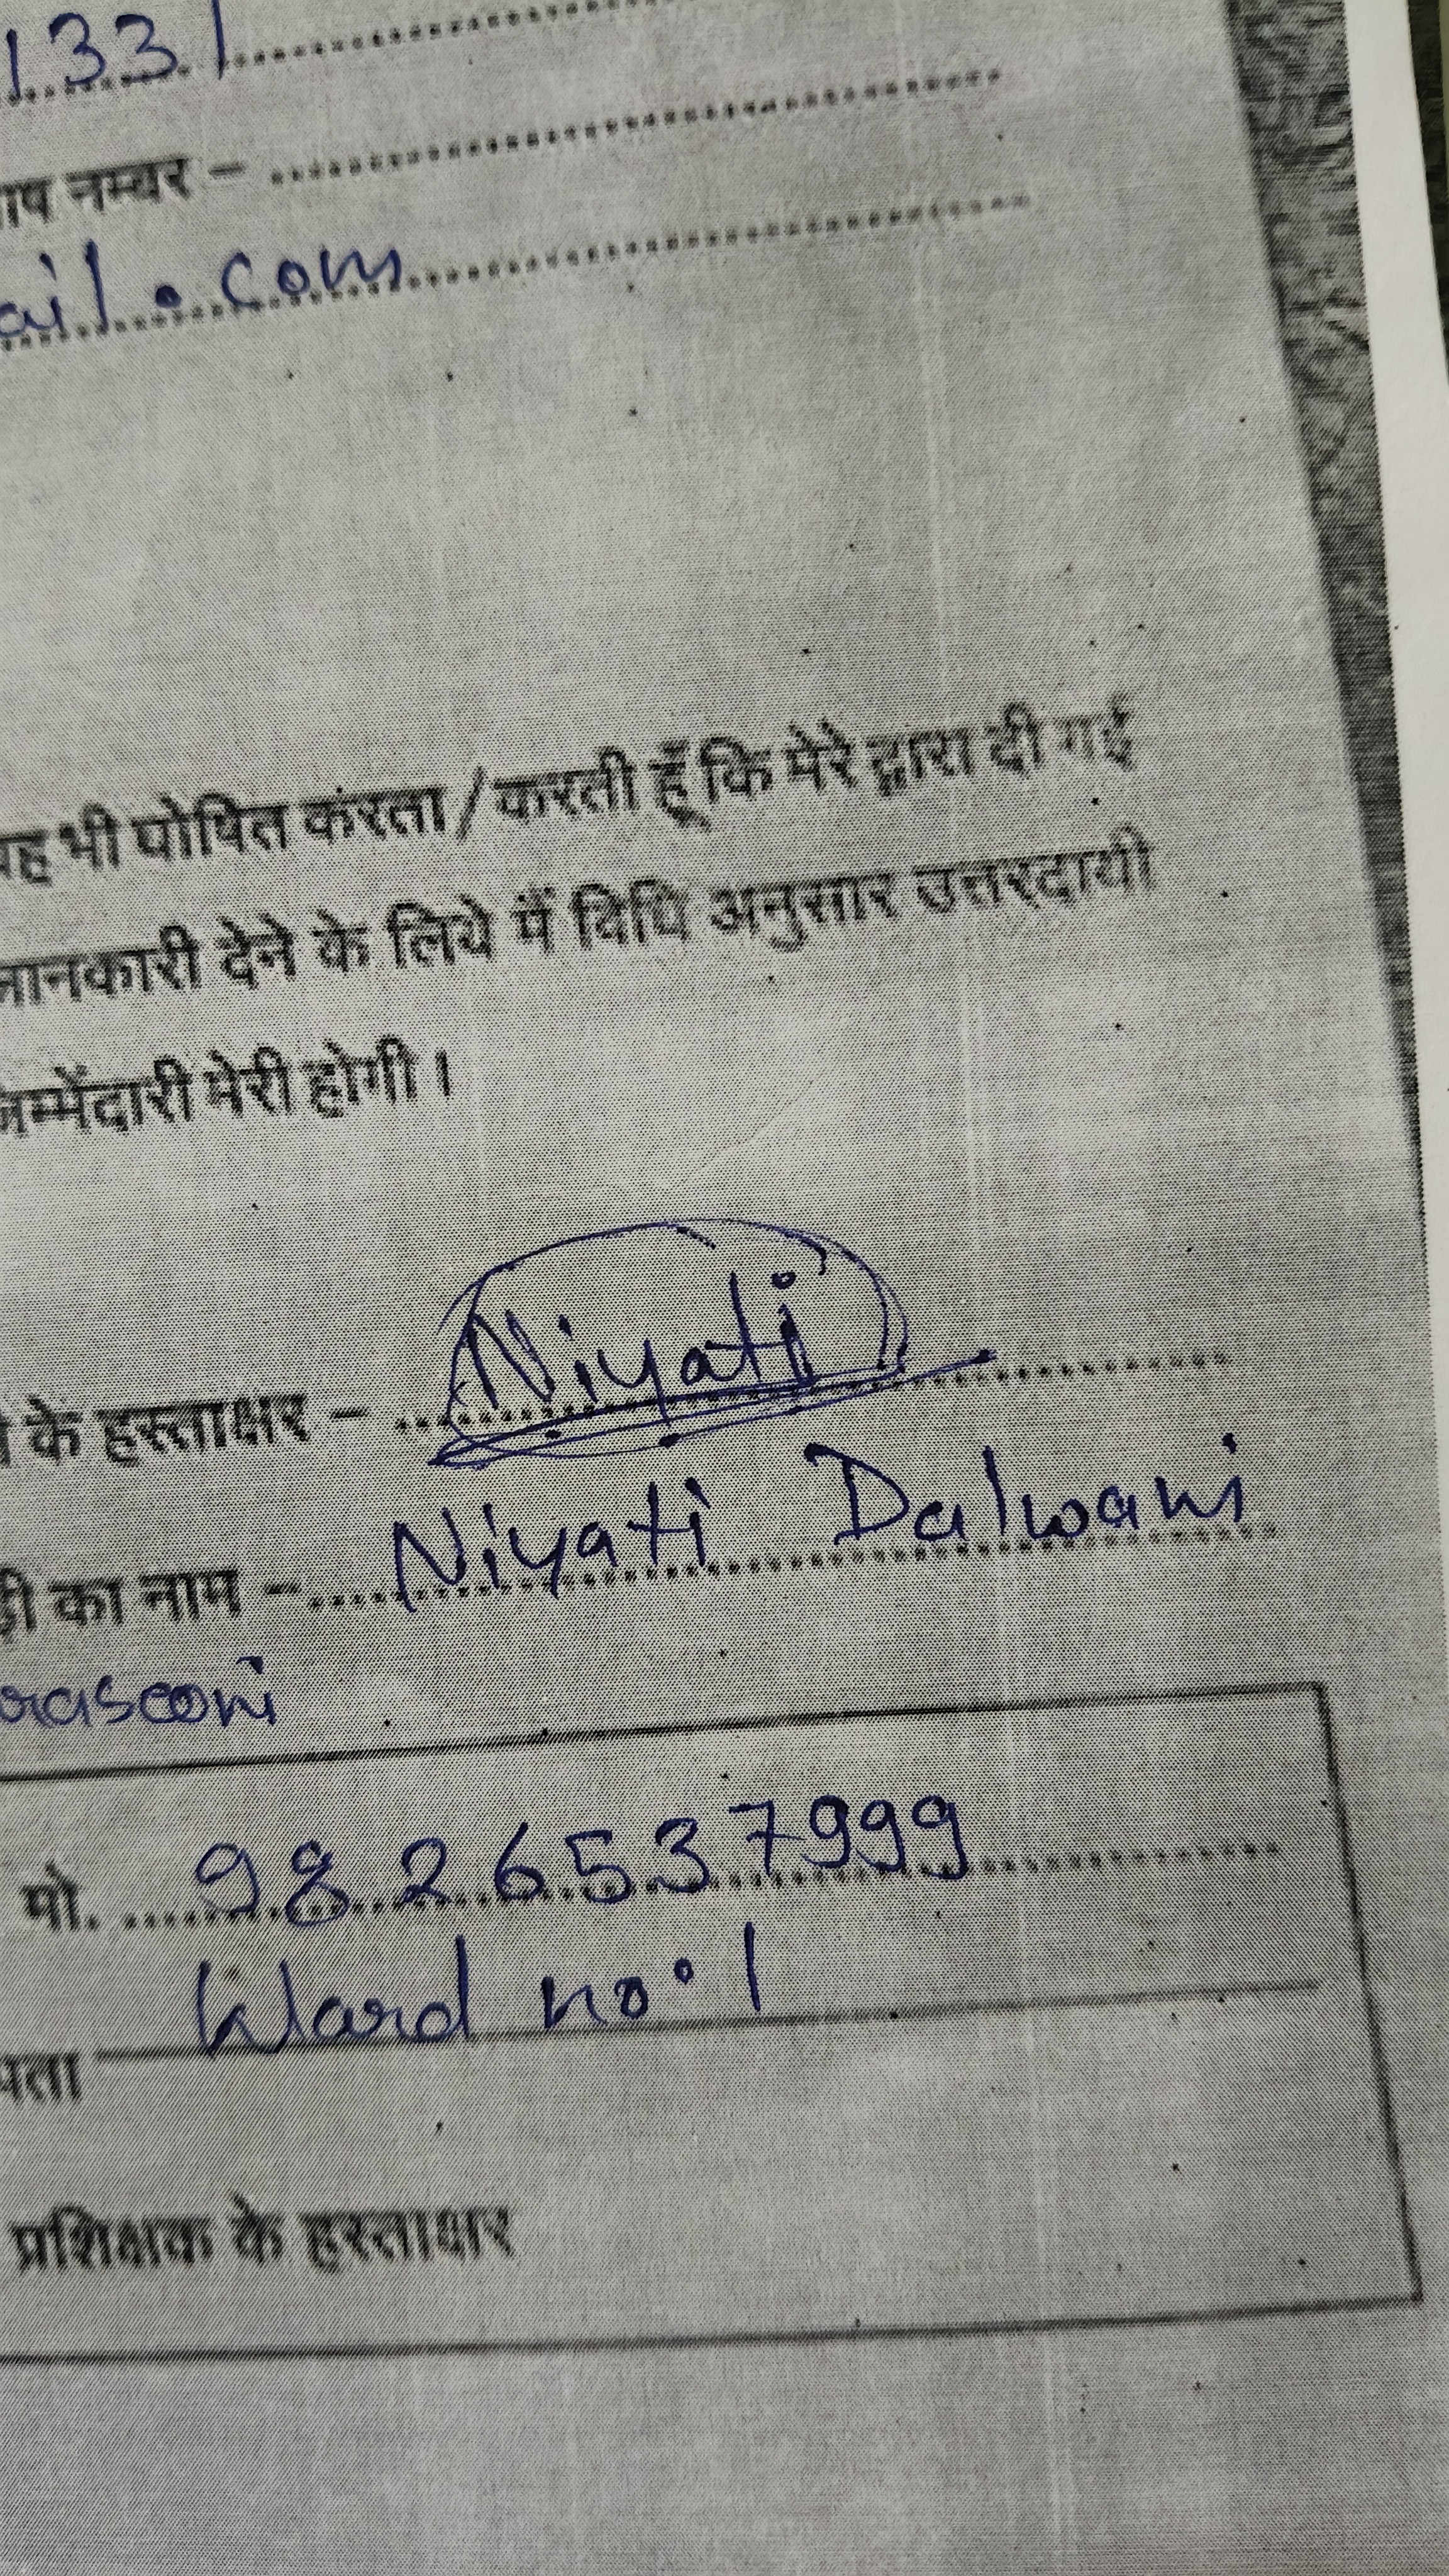 1331
नम्बर - ....................
ail.com
यह भी घोषित करता/करती हूँ कि मेरे द्वारा दी गई
जानकारी देने के लिये मैं विधि अनुसार उत्तरदायी
जिम्मेंदारी मेरी होगी।
के हस्ताक्षर - Niyati
का नाम - Niyati Dalwani
मो. 9826537999
पता Ward no. 1
प्रशिक्षक के हस्ताक्षर